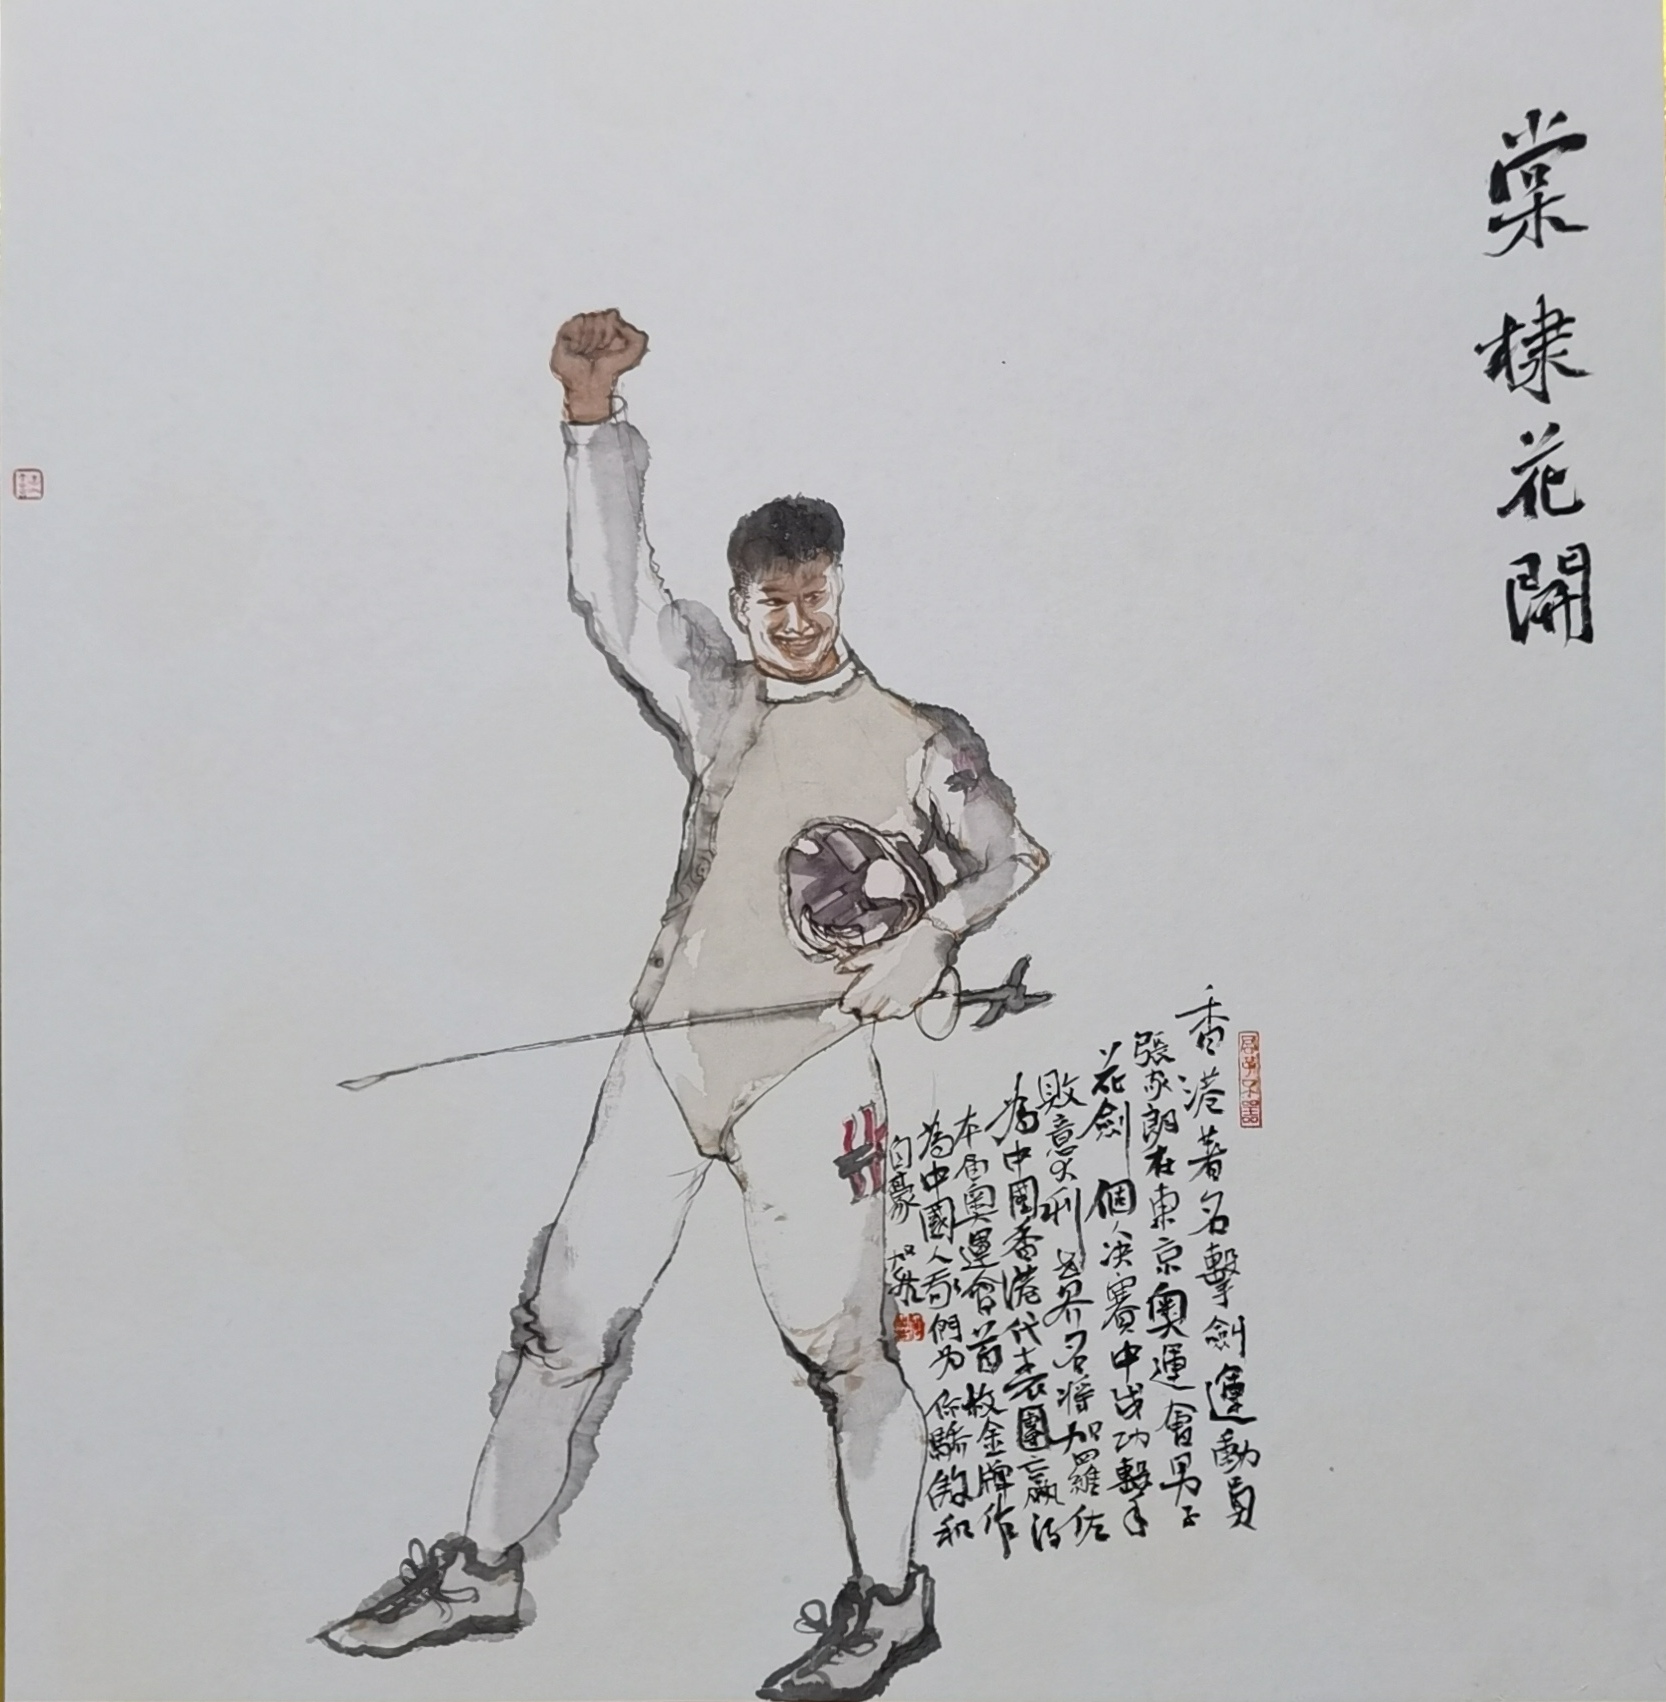 棠棣花開
君子不器
香港著名擊劍運動員
張家朗在東京奧運會男子
花劍個人决賽中成功擊
敗意大利世界名將加羅佐
為中國香港代表團贏得
本届奧運會首枚金牌作
為中國人我們为你驕傲和
自豪